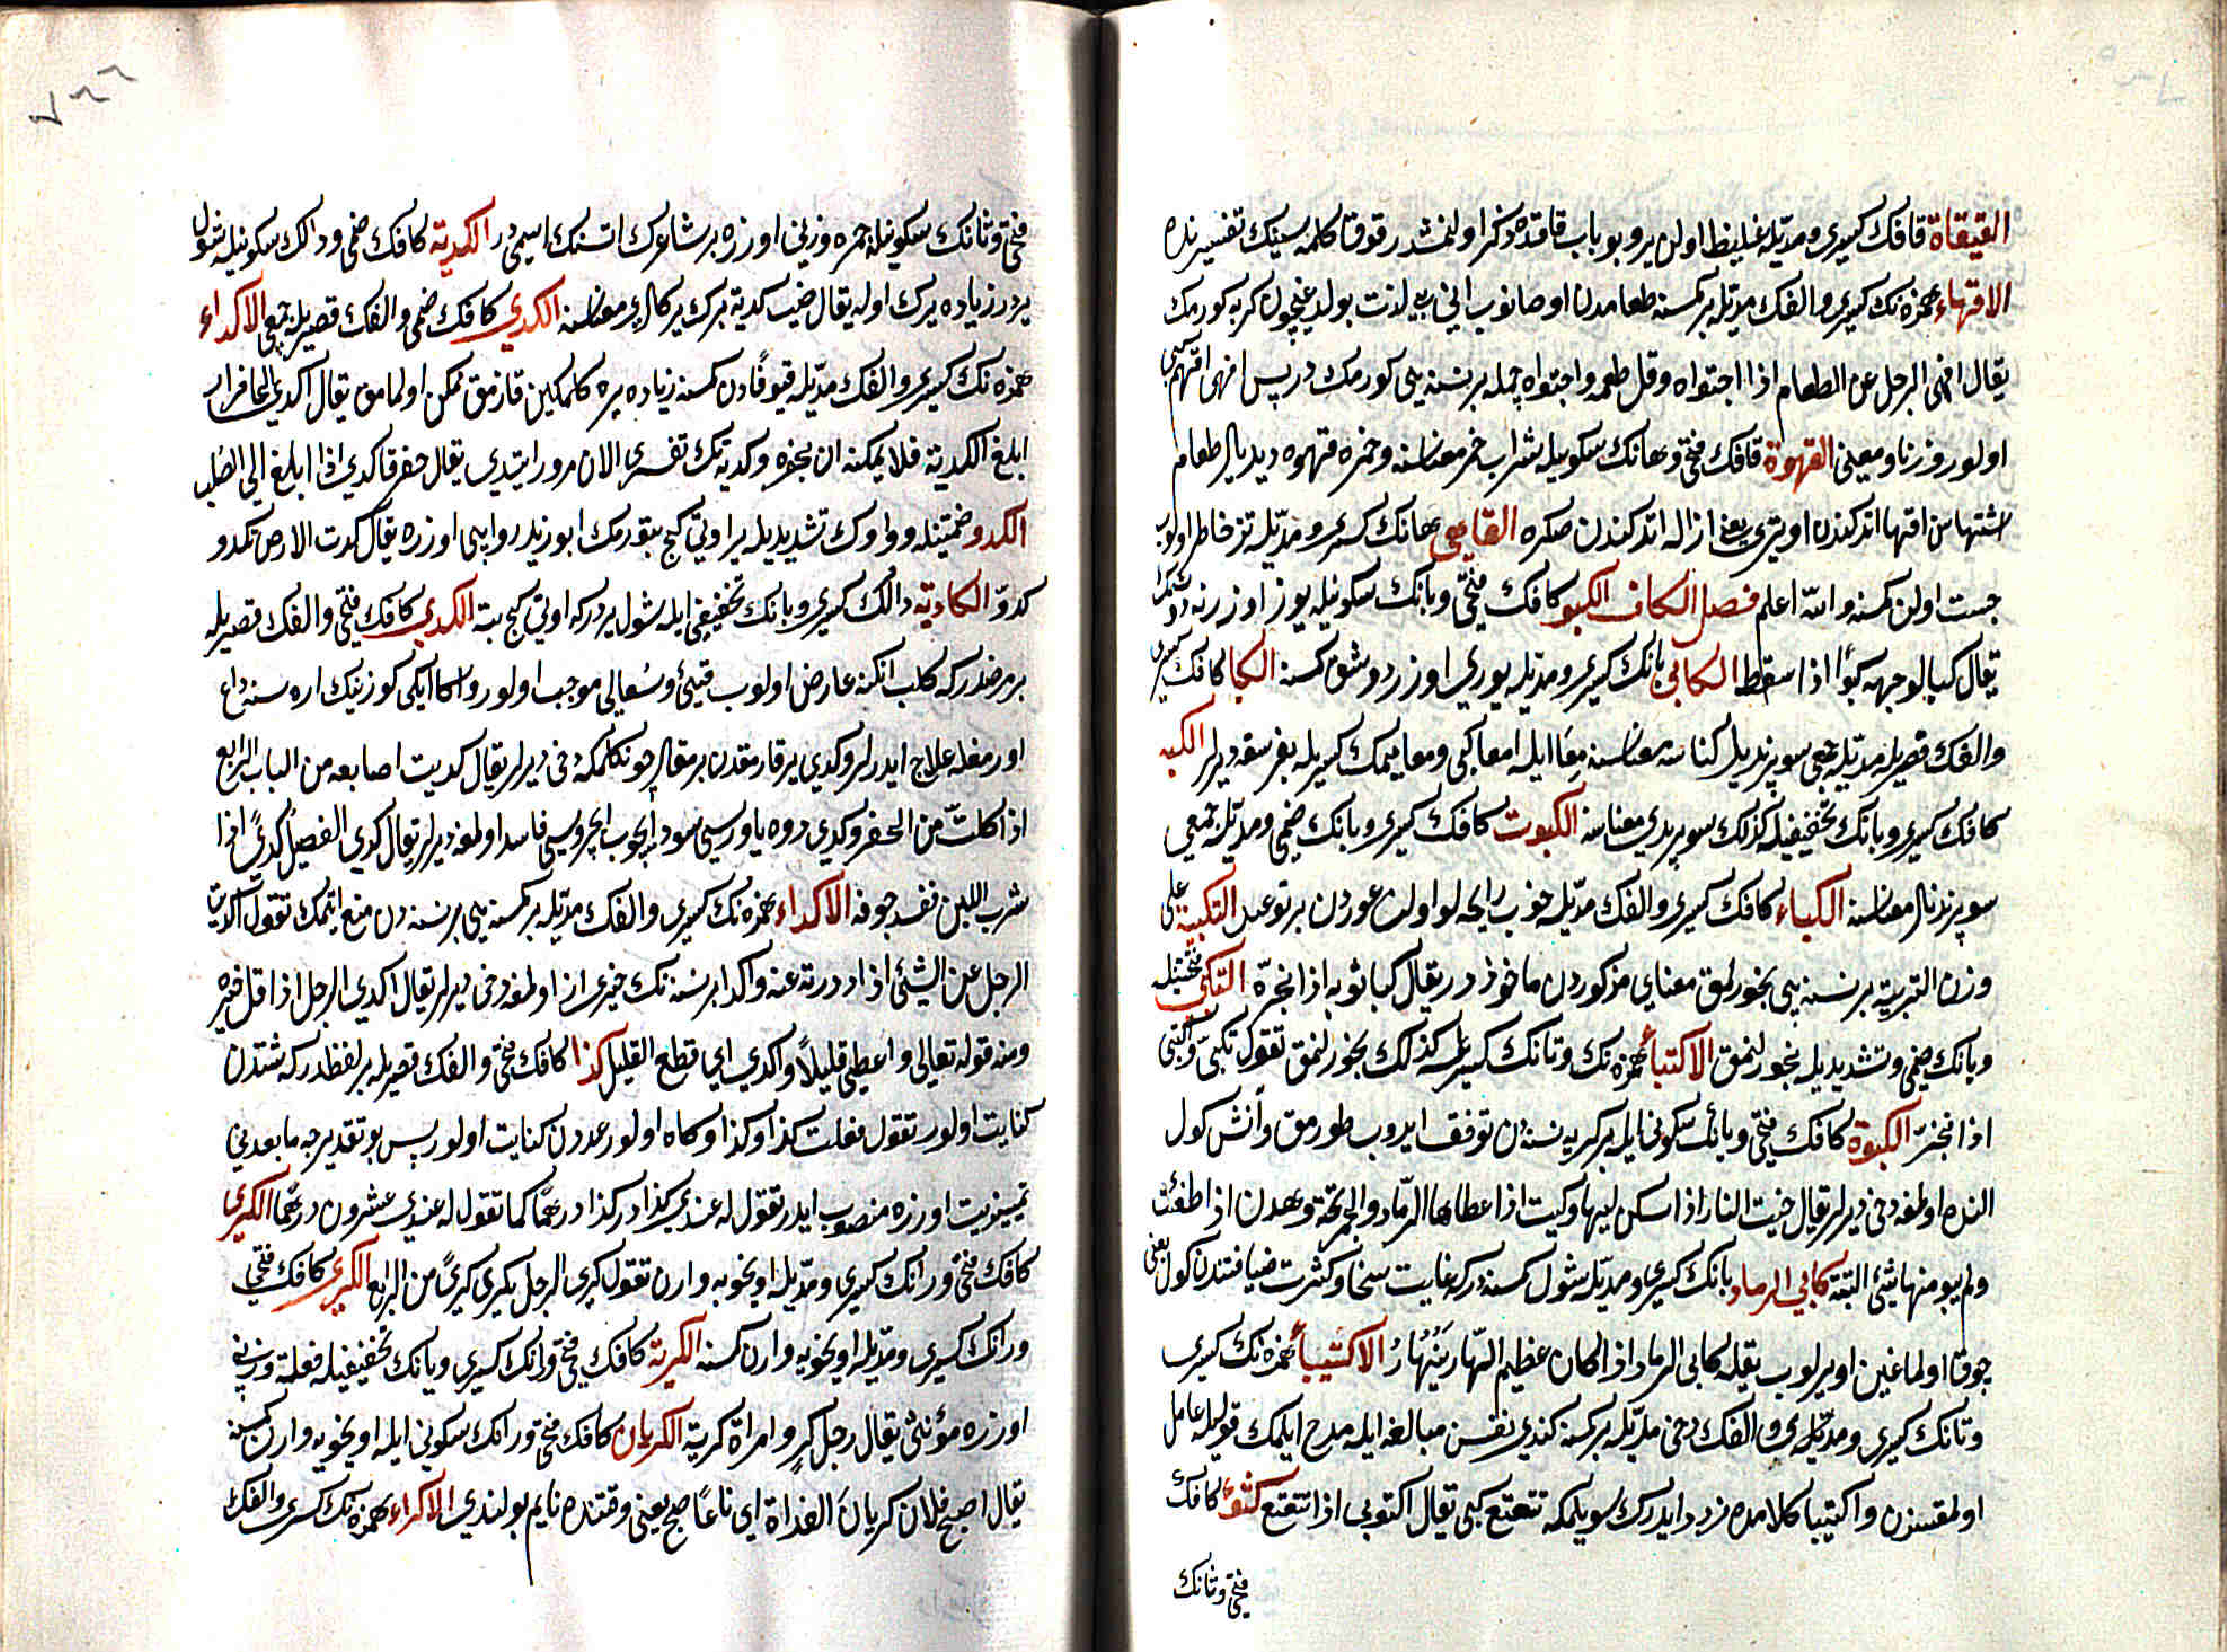 القيقاة قافك كسرى ومديله غليظ اولن ير وبو باب قافده ذكر اولنمشدر قوقا كلمه سينك تفسيرنده
الاقهاء همزه نك كسرى والفك مديله بر كمسنه طعامدن اوصانوب انى بى لذت بولديغيچون كريه كورمك
يقال اقهى الرجل عن الطعام اذا اجتواه وقل طعمه واجتواه جمله بر نسنه يى كورمك در پس اقهى اقهم كبى
اولور وزنا ومعنى القهوة قافك فتحى وهانك سكونيله شراب خمر معناسنه وخمره قهوه ديديلر طعام
اشتهاسن اقها اتدكندن اوترى يعنى ازاله اتدكندن صكره القاهى هانك كسرى ومديله تز خاطر اولوب
جست اولن كمسنه والله اعلم فصل الكاف الكبو كافك فتحى وبانك سكونيله يوز اوزرنه دوشمك
يقال كبا لوجهه كبوا اذا سقط الكابى بانك كسرى ومديله يوزى اوزره دوشن كمسنه الكبا كافك كسرى
والفك قصريله مديله جمعى سوپرندى يعنى كناسه معناسنه معا ايله امعا كبى ومعا ميمك كسريله بغرسقه ديرلر الكبه
كافك كسرى وبانك تخفيفيله كذلك سوپرندى معناسنه الكبوت كافك كسرى وبانك ضمى ومديله جمعى
سوپرندى لر معناسنه الكباء كافك كسرى والفك مديله خوب رايحه لو اولن عوددن بر نوعدر التكبية على
وزن التربية بر نسنه يى بخورلمق معناى مذكوردن ماخوذدر يقال كبا ثوبه اذا بخره التكبى فتحتينله
وبانك ضمى وتشديديله بخورلنمق الاكتباء همزه نك وتانك كسريله كذلك بخورلنمق تقول تكبى واكتبى
اذا تبخر الكبوة كافك فتحى وبانك سكونى ايله بر كريه نسنه دن توقف ايدوب طورمق وآتش كول
النده اولمغه دخى ديرلر يقال خبت النار اذا سكن لهبها وكبت اذا غطاها الرماد والجمر تحته وهمدت اذا طفئت
ولم يبق منها شئ البتة كابى الرماد بانك كسرى ومديله شول كمسنه در كه غايت سخا وكثرت ضيافتندن كول يعنى
چوق اولماغين اويرلوب يقيله كابى الرماد اذا كان عظيم النهار ينهار الاكتبا همزه نك كسرى
وتانك كسرى ومديله والفك دخى مديله بر كمسنه كندى نفسن مبالغه ايله مدح ايلمك قوليله عامل
اولمقسزن واكتبا كلامده تردد ايدرك سويلمكه تتعتع كبى يقال اكتوبى اذا تتعتع كثوة كافك
فتحى وثانك
فتحى وثانك سكونيله جمره وزنى اوزره بر شاعرك اناسنك اسميدر الكدية كافك ضمى ودالك سكونيله شول
يردر زياده برك اوله يقال ضب كدية برك ير كلرى معناسنه الكدى كافك ضمى والفك قصريله جمعى الاكداء
همزه نك كسرى والفك مديله قيو قازن كمسنه زياده يره كلمكين قازمق ممكن اولمامق يقال اكدى الحافر اذا
ابلغ الكدية فلا يمكنه ان يحفره وكديه نك تفسيرى الان مرور ايتدى يقال حفر فاكدى اذا بلغ الى الصلب
الكدو ضمتينله وواوك تشديديله ير اوتى كج بتورمك ابو زيد روايتى اوزره يقال كدت الارض تكدو
كدوا الكادية دالك كسرى ويانك تخفيفى ايله شول يردر كه اوتى كج بته الكدى كافك فتحى والفك قصريله
بر مرضدر كه كلب انكنه عارض اولوب قيئ وسعالى موجب اولور واكا ايكى كوزينك اره سنه داغ
اورمغله علاج ايدرلر وكدى يرقازمقدن برمقلر يورلمكه دخى ديرلر يقال كديت اصابعه من الباب الرابع
اذا كلت من الحفر وكدى دوه ياوريسى سود ايچوب ايچريسى فاسد اولمغه ديرلر يقال كدى الفصيل كدى اذا
شرب اللبن ففسد جوفه الاكداء همزه نك كسرى والفك مديله بر كمسنه يى بر نسنه دن منع ايتمك تقول اكديت
الرجل عن الشئ اذا رددته عنه واكدا بر نسنه نك خيرى از اولمغه دخى ديرلر يقال اكدى الرجل اذا قل خيره
ومنه قوله تعالى واعطى قليلا واكدى اى قطع القليل كذا كافك فتحى والفك قصريله بر لفظدر كه شيئدن
كنايت اولور تقول فعلت كذا وكذا وكاه اولور عددن كنايت اولور پس بو تقديرجه مابعدنى
تمييزيت اوزره منصوب ايدر تقول له عندى كذا وكذا درهما كما تقول له عندى عشرون درهما الكرى
كافك فتحى ورانك كسرى ومديله اويخويه وارن تقول كرى الرجل يكرى كرى من الرابع الكرى كافك فتحى
ورانك كسرى ومديله اويخويه وارن كمسنه الكرية كافك فتحى ورانك كسرى ويانك تخفيفيله فعلة وزنى
اوزره مؤنثى يقال رجل كر وامراة كرية الكريان كافك فتحى ورانك سكونى ايله اويخويه وارن كمسنه
يقال اصبح فلان كريان الغداة اى ناعسا صبح يعنى وقتنده نايم بولندى الاكراء همزه نك كسرى والفك